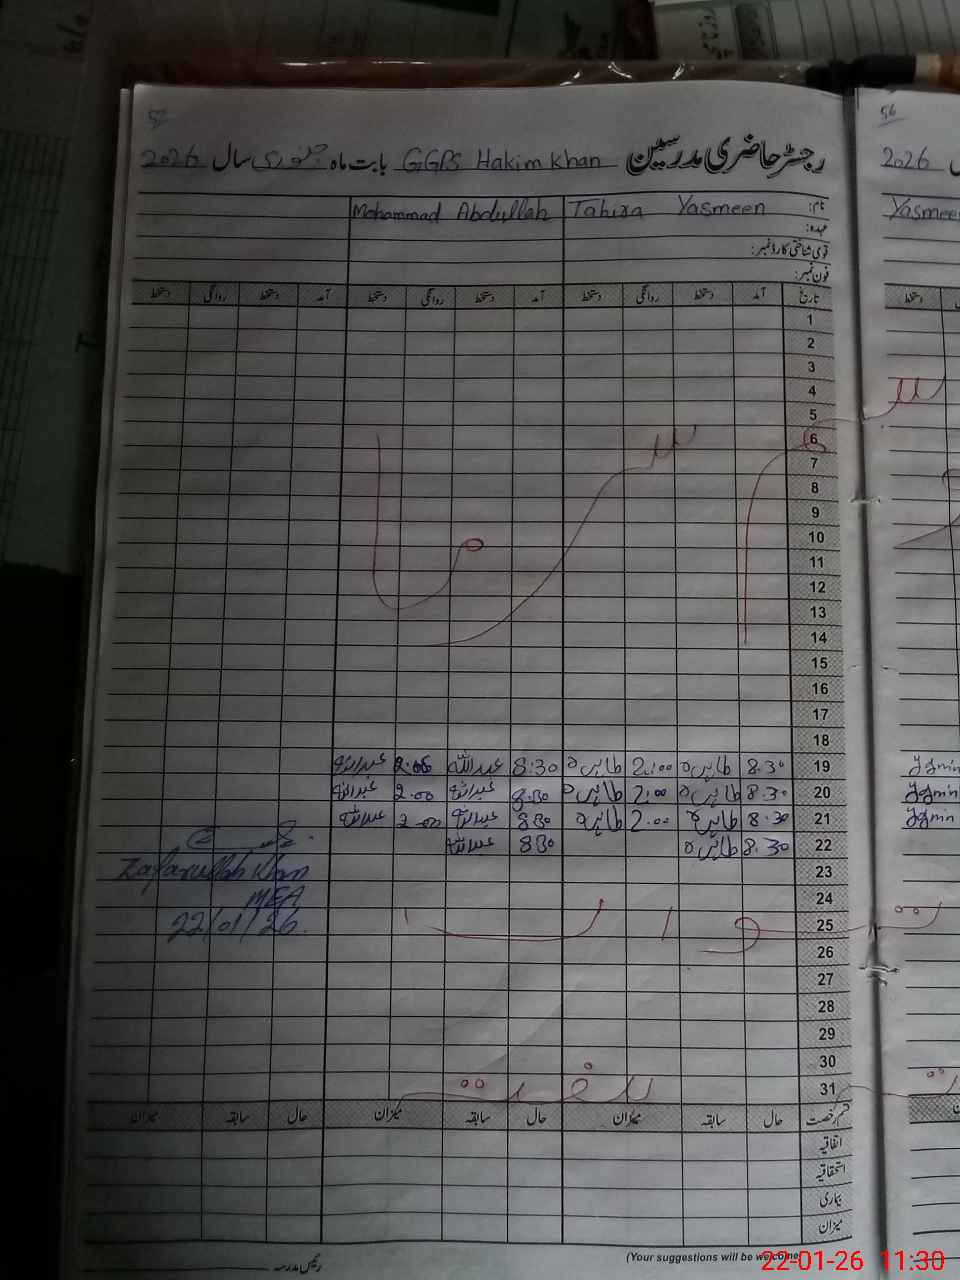 57
رجسٹر حاضری مدرسین GGPS Hakim Khan بابت ماہ جنوری سال 2026
نام: Tahira Yasmeen Mohammad Abdullah
عہدہ:
قومی شناختی کارڈ نمبر:
فون نمبر:
تاریخ آمد دستخط روانگی دستخط آمد دستخط روانگی دستخط آمد دستخط روانگی دستخط
1
2
3
4
5
6
7
8
9
10
11
12
13
14
15
16
17
18
19 8.30 طاہرہ 2:00 طاہرہ 8:30 عبداللہ 2.00 عبداللہ
20 8.30 طاہرہ 2.00 طاہرہ 8.30 عبداللہ 2.00 عبداللہ
21 8.30 طاہرہ 2.00 طاہرہ 830 عبداللہ 2.00 عبداللہ
22 8.30 طاہرہ 830 عبداللہ
Zafarullah Khan
MEA
22/01/26.
23
24
25 اتوار
26
27
28
29
30
31
قسم رخصت حال سابقہ میزان حال سابقہ میزان حال سابقہ میزان
اتفاقیہ
استحقاقیہ
بیماری
میزان
رئیس مدرسہ
(Your suggestions will be welcome
56
2026
Yasmeen
دستخط
22-01-26 11:30